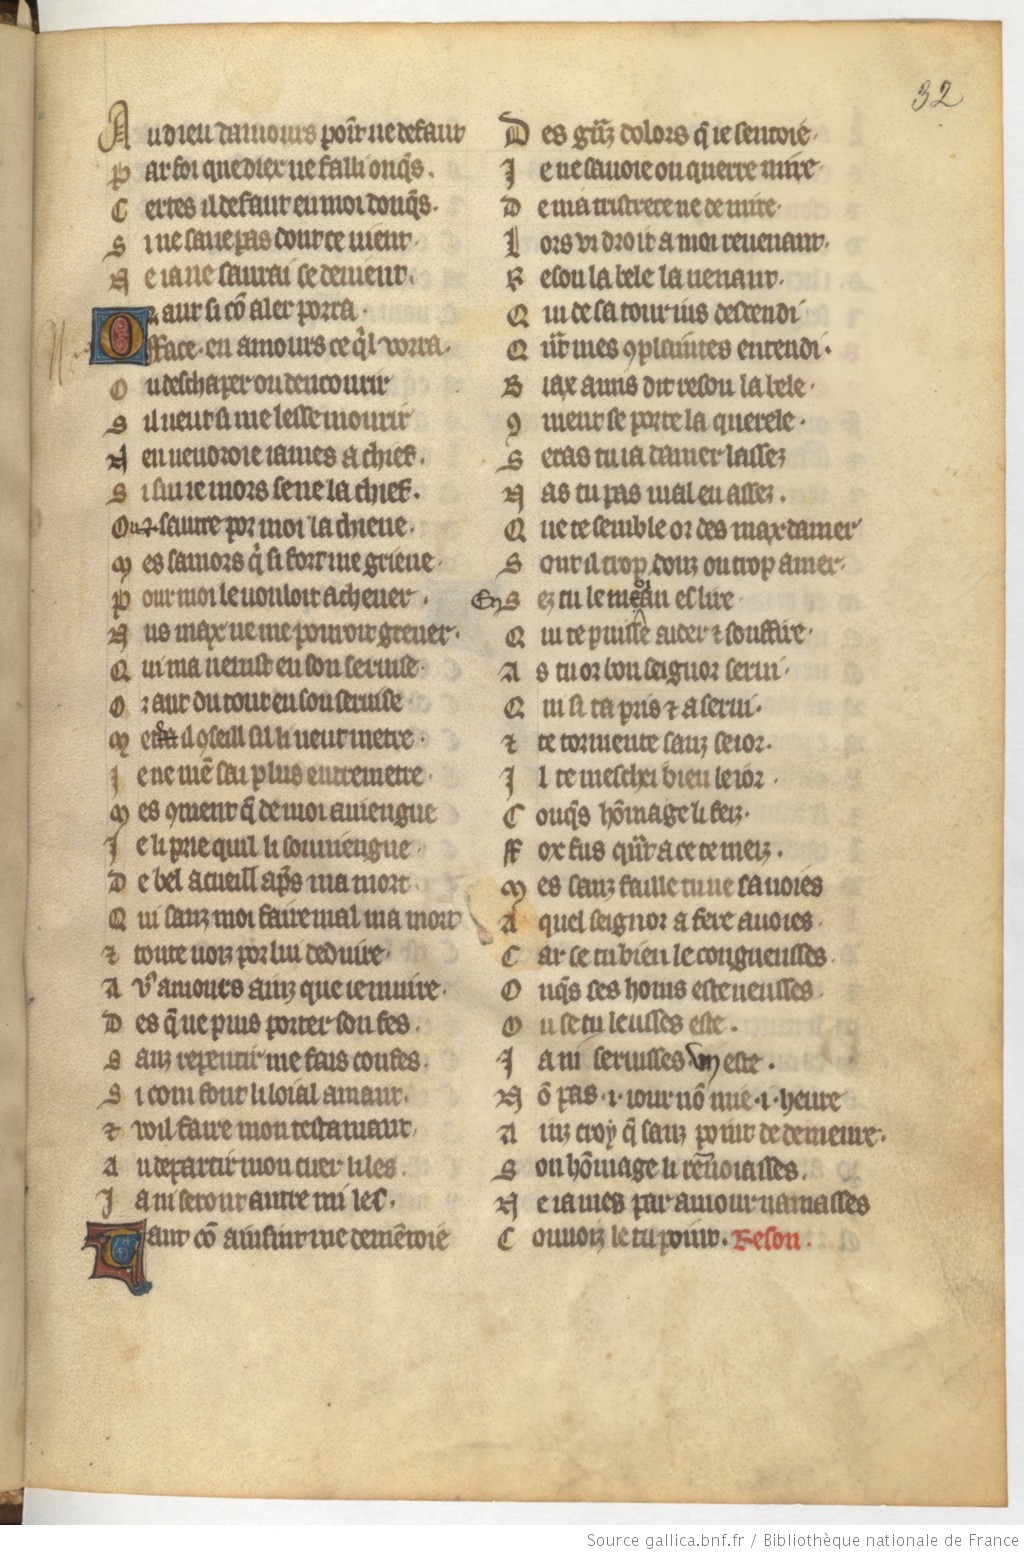 32
Au dieu damours point ne defaut
Par foi que diex ne falli onq̃s.
Certes il defaut en moi donq̃s.
Si ne sauepas dont ce uient.
Ne ia ne saurai se deuient.
Or aut si cõ aler porra.
Or face en amours ce q̃l vorra.
Ou deschaper ou dencourir
Sil ueut si me lesse mourir
Nen uendroie iames a chief.
Si sui ie mors se ne lachief.
Ou sautre por moi lachieue.
Mes samors q̃ si fort me grieue
Pour moi le uouloit acheuer.
Nus max ne me pouroit greuer.
Qui mauenist en son seruise
Or aut du tout en son seruise
Met il ꝯseill sil li ueut metre.
Je ne mẽ sai plus entremetre.
Mes ꝯment q̃ de moi auiengne
Je li prie quil li souuiengne
De bel acueill ap̃s ma mort.
Qui sanz moi faire mal ma mort
⁊ toute uoiz por lui deduire
A vꝰ amours ainz que ie muire.
Des q̃ ne puis porter son fes.
Sanz repentir me fais confes.
Si com font li loial amant.
⁊ voil faire mon testamant.
Au departir mon cuer li les.
Ja ni seront autre mi les.
Tant cõ ainsint me demẽtoie
Des granz dolors q̃ ie sentoie.
Je ne sauoie ou querre mire
De ma tristrece ne de mire.
Lors vi droit a moi reuenant.
Reson la bele la uenant.
Qui de sa tour ius descendi
Quãt mes ꝯplaintes entendi.
Biax amis dit reson la bele.
ꝯment se porte la querele.
Seras tu ia damer lassez
Nas tu pas mal eu assez.
Que te semble or des max damer
Sont il trop douz ou trop amer.
En sez tu le meoian eslire
Qui te puisse aider ⁊ souffire.
As tu or bon seignor serui.
Qui si ta pris ⁊ aserui.
⁊ te tormente sanz seior.
Il te meschei bien le ior.
Conq̃s hõmage li feiz.
Fox fus quãt a ce te meiz.
Mes sanz faille tu ne sauoies
A quel seignor afere auoies.
Car se tu bien le congneusses
Onq̃s ses homs este neusses
Ou se tu leusses este.
Ja ni seruisses vn este.
Nõ pas .i. iour nõ mie .i. heure
Ainz croy q̃ sanz point de demeure.
Son hõmage li renoiasses.
Ne iames par amour namasses
Connoiz le tu point. Reson.
Source gallica.bnf.fr / Bibliothèque nationale de France